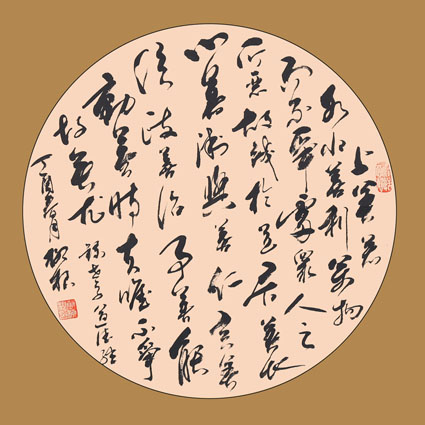 上善若
水水善利萬物
而不爭處眾人之
所惡故幾於道居善地
心善淵與善仁言善
信政善治事善能
動善時夫唯不爭
故無尤
錄老子道德經
丁酉月